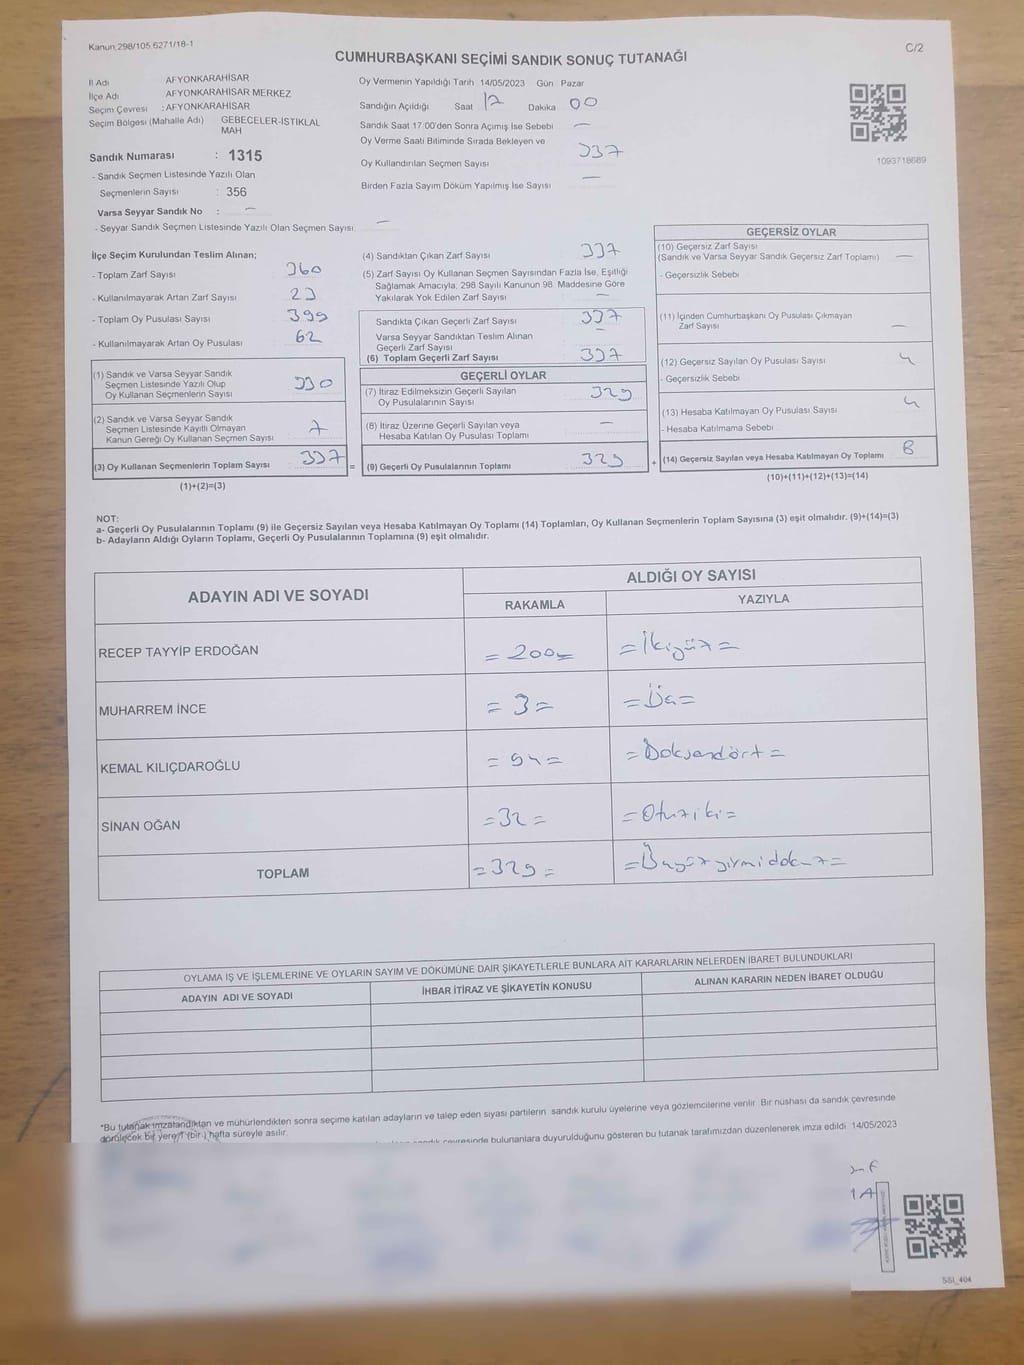 Kanun.298/105.6271/18-1
C/2
CUMHURBAŞKANI SEÇİMİ SANDIK SONUÇ TUTANAĞI
İl Adı AFYONKARAHİSAR
İlçe Adı AFYONKARAHİSAR MERKEZ
Seçim Çevresi : AFYONKARAHİSAR
Seçim Bölgesi (Mahalle Adı) GEBECELER-ISTIKLAL MAH
Sandık Numarası : 1315
- Sandık Seçmen Listesinde Yazılı Olan
Seçmenlerin Sayısı : 356
Varsa Seyyar Sandık No : —
- Seyyar Sandık Seçmen Listesinde Yazılı Olan Seçmen Sayısı —
Oy Vermenin Yapıldığı Tarih 14/05/2023 Gün Pazar
Sandığın Açıldığı Saat 17 Dakika 00
Sandık Saat 17:00'den Sonra Açımış İse Sebebi —
Oy Verme Saati Bitiminde Sırada Bekleyen ve
Oy Kullandırılan Seçmen Sayısı 337
Birden Fazla Sayım Döküm Yapılmış İse Sayısı —
1093718689
İlçe Seçim Kurulundan Teslim Alınan;
- Toplam Zarf Sayısı 360
- Kullanılmayarak Artan Zarf Sayısı 23
- Toplam Oy Pusulası Sayısı 399
- Kullanılmayarak Artan Oy Pusulası 62
(1) Sandık ve Varsa Seyyar Sandık
Seçmen Listesinde Yazılı Olup
Oy Kullanan Seçmenlerin Sayısı 330
(2) Sandık ve Varsa Seyyar Sandık
Seçmen Listesinde Kayıtlı Olmayan
Kanun Gereği Oy Kullanan Seçmen Sayısı 7
(3) Oy Kullanan Seçmenlerin Toplam Sayısı 337 =
(1)+(2)=(3)
(4) Sandıktan Çıkan Zarf Sayısı 337
(5) Zarf Sayısı Oy Kullanan Seçmen Sayısından Fazla İse, Eşitliği
Sağlamak Amacıyla; 298 Sayılı Kanunun 98. Maddesine Göre
Yakılarak Yok Edilen Zarf Sayısı —
Sandıkta Çıkan Geçerli Zarf Sayısı 337
Varsa Seyyar Sandıktan Teslim Alınan
Geçerli Zarf Sayısı —
(6) Toplam Geçerli Zarf Sayısı 337
GEÇERLİ OYLAR
(7) İtiraz Edilmeksizin Geçerli Sayılan
Oy Pusulalarının Sayısı 329
(8) İtiraz Üzerine Geçerli Sayılan veya
Hesaba Katılan Oy Pusulası Toplamı —
(9) Geçerli Oy Pusulalarının Toplamı 329 +
GEÇERSİZ OYLAR
(10) Geçersiz Zarf Sayısı
(Sandık ve Varsa Seyyar Sandık Geçersiz Zarf Toplamı) —
- Geçersizlik Sebebi
(11) İçinden Cumhurbaşkanı Oy Pusulası Çıkmayan
Zarf Sayısı —
(12) Geçersiz Sayılan Oy Pusulası Sayısı 4
- Geçersizlik Sebebi
(13) Hesaba Katılmayan Oy Pusulası Sayısı 4
- Hesaba Katılmama Sebebi
(14) Geçersiz Sayılan veya Hesaba Katılmayan Oy Toplamı 8
(10)+(11)+(12)+(13)=(14)
NOT:
a- Geçerli Oy Pusulalarının Toplamı (9) ile Geçersiz Sayılan veya Hesaba Katılmayan Oy Toplamı (14) Toplamları, Oy Kullanan Seçmenlerin Toplam Sayısına (3) eşit olmalıdır. (9)+(14)=(3)
b- Adayların Aldığı Oyların Toplamı, Geçerli Oy Pusulalarının Toplamına (9) eşit olmalıdır.
ADAYIN ADI VE SOYADI
ALDIĞI OY SAYISI
RAKAMLA YAZIYLA
RECEP TAYYİP ERDOĞAN = 200 = = İkiyüz =
MUHARREM İNCE = 3 = = Üç =
KEMAL KILIÇDAROĞLU = 94 = = Doksandört =
SİNAN OĞAN = 32 = = Otuziki =
TOPLAM = 329 = = Üçyüzyirmidokuz =
OYLAMA İŞ VE İŞLEMLERİNE VE OYLARIN SAYIM VE DÖKÜMÜNE DAİR ŞİKAYETLERLE BUNLARA AİT KARARLARIN NELERDEN İBARET BULUNDUKLARI
ADAYIN ADI VE SOYADI İHBAR İTİRAZ VE ŞİKAYETİN KONUSU ALINAN KARARIN NEDEN İBARET OLDUĞU
*Bu tutanak imzalandıktan ve mühürlendikten sonra seçime katılan adayların ve talep eden siyasi partilerin sandık kurulu üyelerine veya gözlemcilerine verilir. Bir nüshası da sandık çevresinde
görülecek bir yere 1 (bir) hafta süreyle asılır.
çevresinde bulunanlara duyurulduğunu gösteren bu tutanak tarafımızdan düzenlenerek imza edildi. 14/05/2023
SSI_404